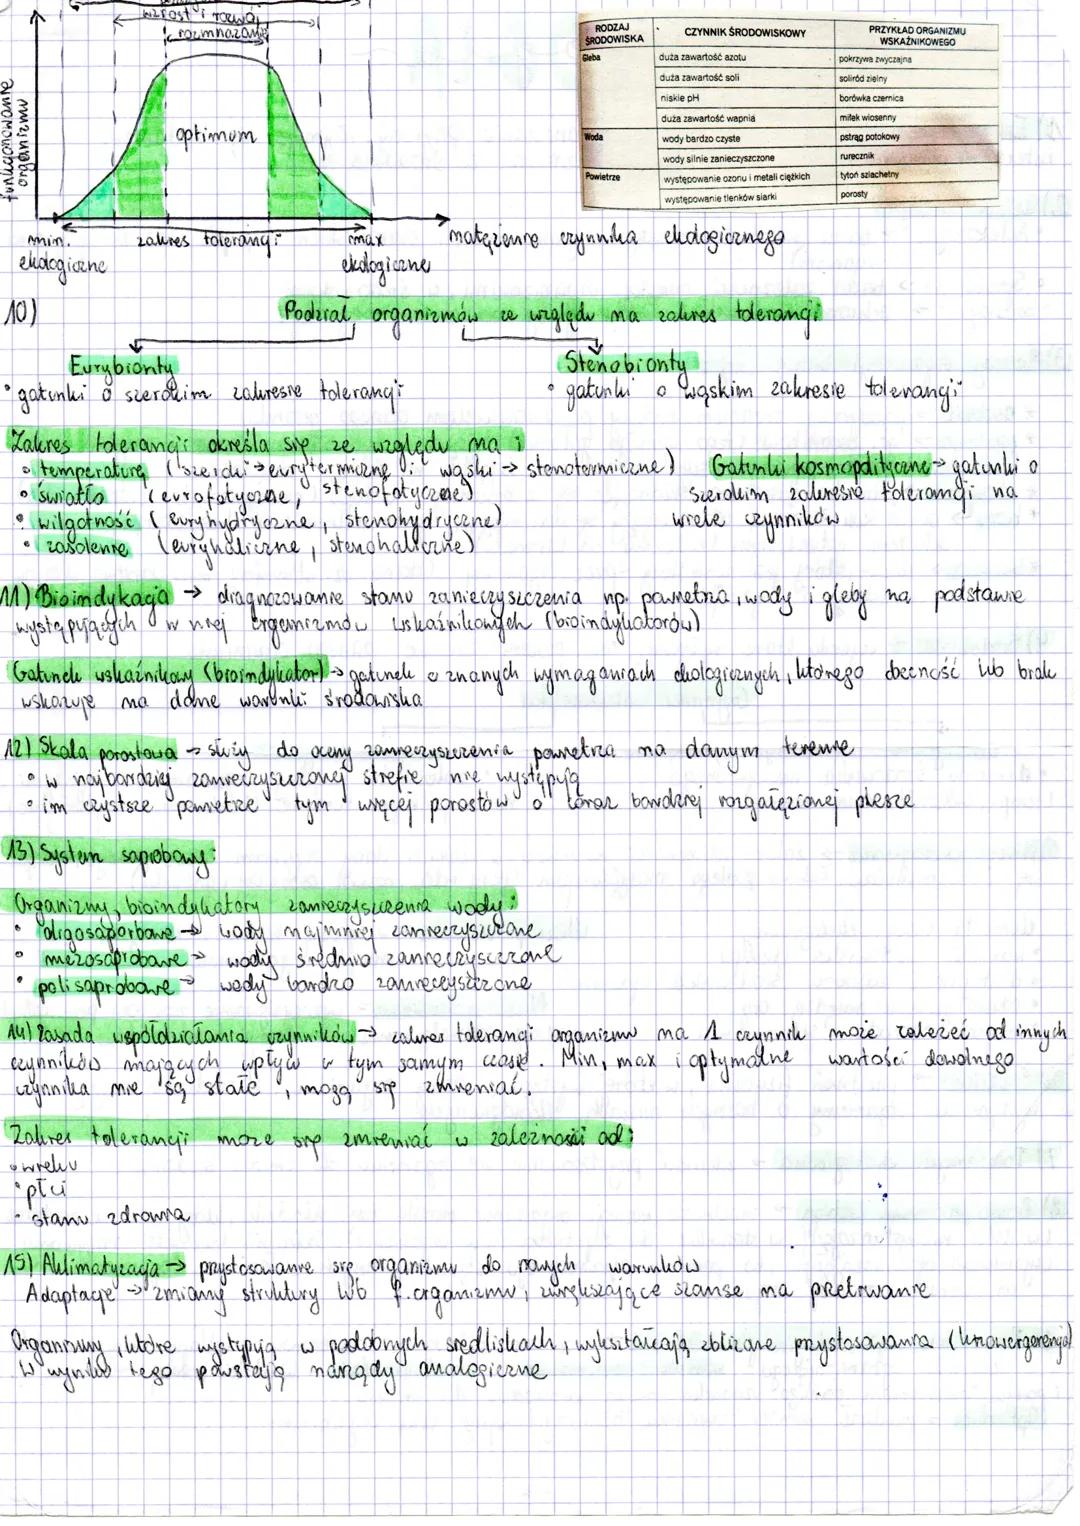 wzrost i rozwój
rozmnażanie
funkcjonowanie
organizmu
optimum
min.
ekologiczne
zakres tolerancji
max
ekologiczne
natężenie czynnika ekologicznego
RODZAJ ŚRODOWISKA
CZYNNIK ŚRODOWISKOWY
PRZYKŁAD ORGANIZMU WSKAŹNIKOWEGO
Gleba
duża zawartość azotu
pokrzywa zwyczajna
duża zawartość soli
soliród zielny
niskie pH
borówka czernica
duża zawartość wapnia
miłek wiosenny
Woda
wody bardzo czyste
pstrąg potokowy
wody silnie zanieczyszczone
rurecznik
Powietrze
występowanie ozonu i metali ciężkich
tytoń szlachetny
występowanie tlenków siarki
porosty
10) Podział organizmów ze względu na zakres tolerancji
Eurybionty
• gatunki o szerokim zakresie tolerancji
Stenobionty
• gatunki o wąskim zakresie tolerancji
Zakres tolerancji określa się ze względu na:
• temperaturę (szeroki → eurytermiczne i wąski → stenotermiczne)
• światło (eurofotyczne, stenofotyczne)
• wilgotność (euryhydryczne, stenohydryczne)
• zasolenie (euryhaliczne, stenohaliczne)
Gatunki kosmopolityczne → gatunki o
szerokim zakresie tolerancji na
wiele czynników
11) Bioindykacja → diagnozowanie stanu zanieczyszczenia np. powietrza, wody i gleby na podstawie
występujących w niej organizmów wskaźnikowych (bioindykatorów)
Gatunek wskaźnikowy (bioindykator) → gatunek o znanych wymaganiach ekologicznych, którego obecność lub brak
wskazuje na dane warunki środowiska
12) Skala porostowa → służy do oceny zanieczyszczenia powietrza na danym terenie
• w najbardziej zanieczyszczonej strefie nie występują
• im czystsze powietrze tym więcej porostów o coraz bardziej rozgałęzionej plesze
13) System saprobowy:
Organizmy, bioindykatory zanieczyszczenia wody:
• oligosaporbowe → wody najmniej zanieczyszczone
• mezosaprobowe → wody średnio zanieczyszczone
• polisaprobowe → wody bardzo zanieczyszczone
14) Zasada współdziałania czynników → zakres tolerancji organizmu na 1 czynnik może zależeć od innych
czynników mających wpływ w tym samym czasie. Min, max i optymalne wartości dowolnego
czynnika nie są stałe, mogą się zmieniać.
Zakres tolerancji może się zmieniać w zależności od:
• wieku
• płci
• stanu zdrowia
15) Aklimatyzacja → przystosowanie się organizmu do nowych warunków
Adaptacje → zmiany struktury lub f. organizmu, zwiększające szanse na przetrwanie
Organizmy, które występują w podobnych siedliskach, wykształcają zbliżone przystosowania (konwergencja)
W wyniku tego powstają narządy analogiczne